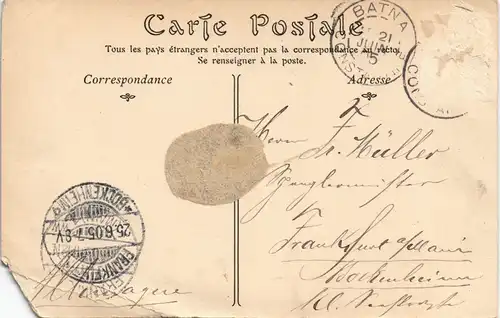 Carte Postale
Tous les pays étrangers n'acceptent pas la correspondance au recto.
Se renseigner à la poste.
Correspondance
Adresse
BATNA
21
JUIN
5
CONST
Herrn
Fr. Müller
Spenglermeister
Frankfurt a/Main
Bockenheim
kl. Seestraße
Allemagne
BOCKENHEIM
25.6.05.7-8V.
FRANKFURT